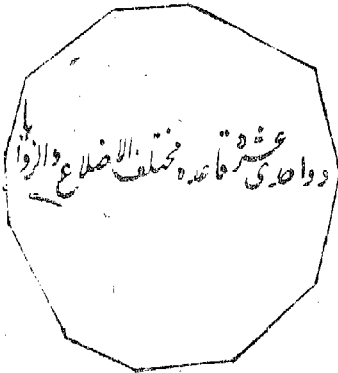 ذو احدی عشره قاعده مختلف الاضلاع والزوایا